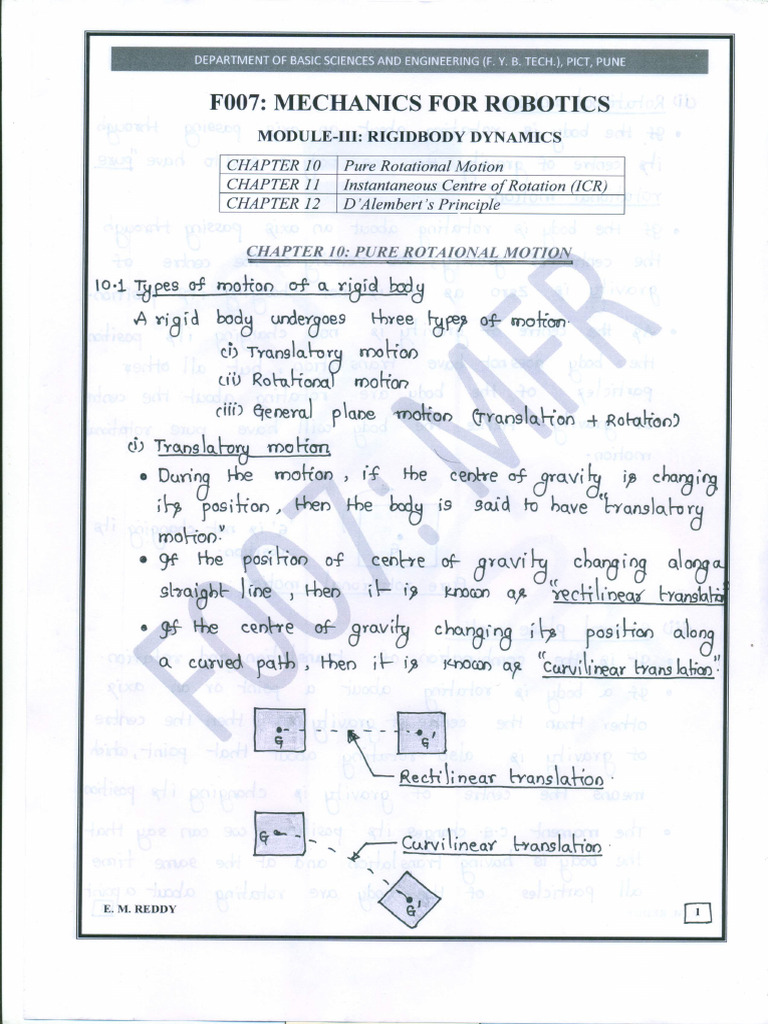 DEPARTMENT OF BASIC SCIENCES AND ENGINEERING (F. Y. B. TECH.), PICT, PUNE
F007: MECHANICS FOR ROBOTICS
MODULE-III: RIGIDBODY DYNAMICS
CHAPTER 10 Pure Rotational Motion
CHAPTER 11 Instantaneous Centre of Rotation (ICR)
CHAPTER 12 D'Alembert's Principle
CHAPTER 10: PURE ROTAIONAL MOTION
10.1 Types of motion of a rigid body
A rigid body undergoes three types of motion.
(i) Translatory motion
(ii) Rotational motion
(iii) General plane motion (Translation + Rotation)
(i) Translatory motion
• During the motion, if the centre of gravity is changing
its position, then the body is said to have "translatory
motion."
• If the position of centre of gravity changing along a
straight line, then it is known as "rectilinear translation"
• If the centre of gravity changing its position along
a curved path, then it is known as "curvilinear translation".
G G'
Rectilinear translation.
G
Curvilinear translation
G'
E. M. REDDY 1
F007: MFR